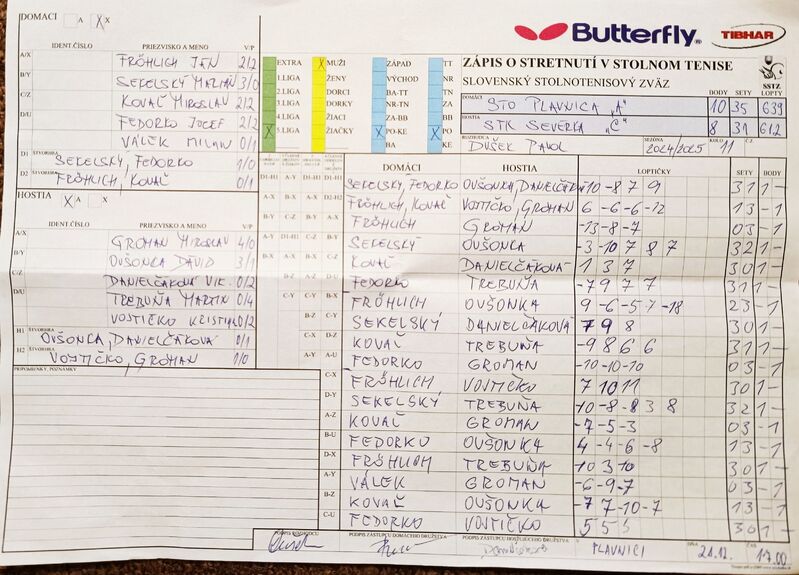 DOMÁCI A X
Butterfly TIBHAR
IDENT.ČÍSLO PRIEZVISKO A MENO V/P
A/X FRÖHLICH JÁN 2/2
B/Y SEKELSKÝ MARIÁN 3/0
C/Z KOVAĽ MIROSLAV 2/2
D/U FEDORKO JOZEF 2/2
VÁLEK MILAN 0/1
D1 ŠTVORHRA SEKELSKÝ, FEDORKO 1/0
D2 ŠTVORHRA FRÖHLICH, KOVAĽ 0/1
HOSTIA X A X
IDENT.ČÍSLO PRIEZVISKO A MENO V/P
A/X GROMAN MIROSLAV 4/0
B/Y OUŠONKA DÁVID 3/1
C/Z DANIELČÁKOVÁ VIK. 0/2
D/U TREBUŇA MARTIN 0/4
VOJTIČKO KRISTIÁN 0/2
H1 ŠTVORHRA OUŠONKA, DANIELČÁKOVÁ 0/1
H2 ŠTVORHRA VOJTIČKO, GROMAN 1/0
PRIPOMIENKY, POZNÁMKY
EXTRA X MUŽI ZÁPAD TT
1.LIGA ŽENY VÝCHOD NR
2.LIGA DORCI BA-TT TN
3.LIGA DORKY NR-TN ZA
4.LIGA ŽIACI ZA-BB BB
X 5.LIGA ŽIAČKY X PO-KE X PO
BA KE
ZÁPIS O STRETNUTÍ V STOLNOM TENISE
SLOVENSKÝ STOLNOTENISOVÝ ZVÄZ SSTZ
BODY SETY LOPTY
DOMÁCI STO PLAVNICA "A" 10 35 639
HOSTIA STK SEVERKA "C" 8 31 612
ROZHODCA DUŠEK PAVOL SEZÓNA 2024/2025 KOLO 11 Č.Z.
DOMÁCI HOSTIA LOPTIČKY SETY BODY
SEKELSKÝ, FEDORKO OUŠONKA, DANIELČÁKOVÁ -10 -8 7 9 3 1 1 -
FRÖHLICH, KOVAĽ VOJTIČKO, GROMAN 6 -6 -6 -12 1 3 - 1
FRÖHLICH GROMAN -13 -8 -7 0 3 - 1
SEKELSKÝ OUŠONKA -3 -10 7 8 7 3 2 1 -
KOVAĽ DANIELČÁKOVÁ 1 3 7 3 0 1 -
FEDORKO TREBUŇA -7 9 7 7 3 1 1 -
FRÖHLICH OUŠONKA 9 -6 -5 7 -18 2 3 - 1
SEKELSKÝ DANIELČÁKOVÁ 7 9 8 3 0 1 -
KOVAĽ TREBUŇA -9 8 6 6 3 1 1 -
FEDORKO GROMAN -10 -10 -10 0 3 - 1
FRÖHLICH VOJTIČKO 7 10 11 3 0 1 -
SEKELSKÝ TREBUŇA -10 -8 8 3 8 3 2 1 -
KOVAĽ GROMAN -7 -5 -3 0 3 - 1
FEDORKO OUŠONKA 4 -4 -6 -8 1 3 - 1
FRÖHLICH TREBUŇA 10 3 10 3 0 1 -
VÁLEK GROMAN -6 -9 -7 0 3 - 1
KOVAĽ OUŠONKA -7 7 -10 -7 1 3 - 1
FEDORKO VOJTIČKO 5 5 5 3 0 1 -
PODPIS ROZHODCU PODPIS DOMÁCEHO DRUŽSTVA PODPIS HOSŤUJÚCEHO DRUŽSTVA V PLAVNICI DŇA 21.12. ČAS 17.00